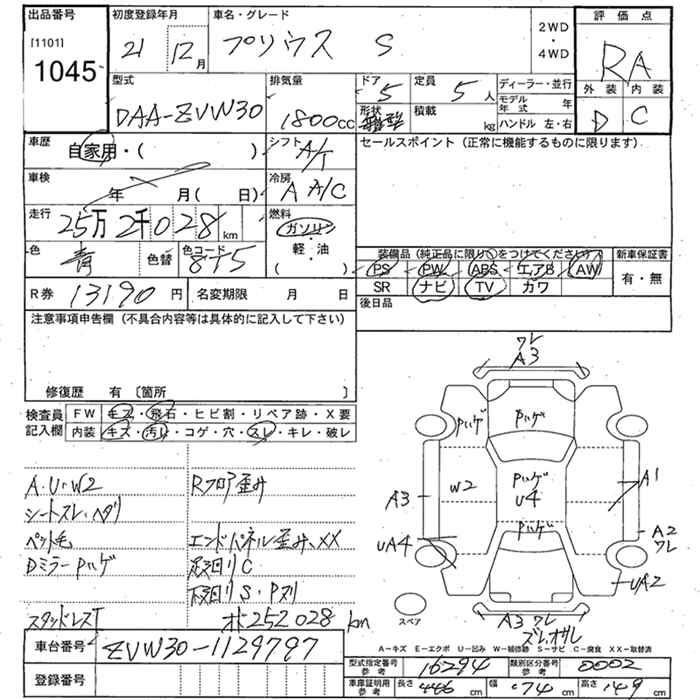 出品番号
[1101]
1045
初度登録年月
21 12月
車名・グレード
プリウス S
2WD
・
4WD
評価点
RA
外装 内装
D C
型式
DAA-ZVW30
排気量
1800cc
ドア
5
形状
定員
5人
積載
kg
ディーラー・並行
モデル年式 年
ハンドル 左・右
車歴
自家用・( )
シフト
A/T
セールスポイント (正常に機能するものに限ります)
車検
年 月( 日)
冷房
A A/C
走行
25万2千028km
燃料
ガソリン
・
軽・油
( )
色
青
色替
色コード
8T5
装備品 (純正品に限り○をつけてください)
PS PW ABS エアB AW
SR ナビ TV カワ
新車保証書
有・無
後日品
R券 13190円
名変期限 月 日
注意事項申告欄 (不具合内容等は具体的に記入して下さい)
修復歴 有 〔箇所 〕
検査員記入欄
FW キズ・飛石・ヒビ割・リペア跡・X要
内装 キズ・汚れ・コゲ・穴・スレ・キレ・破レ
A・U・W2
シートスレ・ヘタリ
ペット毛
Dミラー Pハゲ
スタッドレスT
Rフロア歪み
エンドパネル歪み、XX
足回りC
下回りS・P刈
オ252028km
ワレ
A3
Pハゲ
Pハゲ
W2
Pハゲ
U4
A1
A3
Pハゲ
A2
ワレ
UA4
UA2
スペア
A3 ワレ
ズレ、オサレ
A－キズ E－エクボ U－凹み W－補修跡 S－サビ C－腐食 XX－取替済
車台番号
ZVW30-1129797
登録番号
型式指定番号
参考
16294
類別区分番号
参考
0002
車庫証明用
参考
長さ 446cm
幅 174cm
高さ 149cm